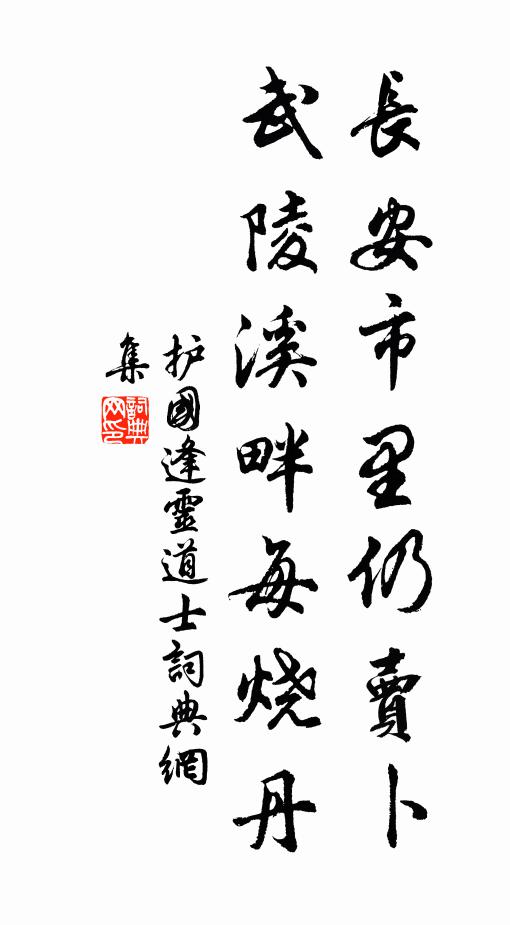 長安市里仍賣卜
武陵溪畔每燒丹
护國逢靈道士詞典網
集
詞典
网印